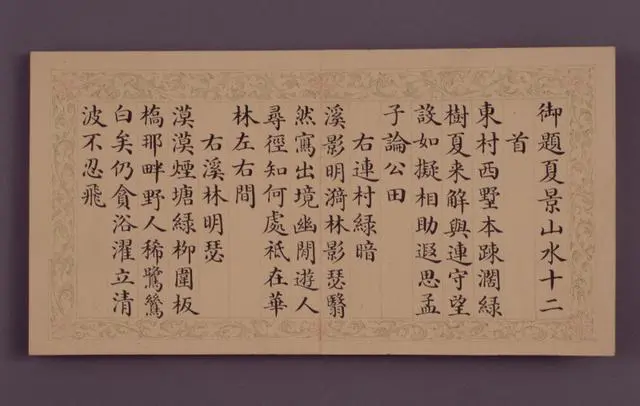 御題夏景山水十二
首
東村西墅本踈濶綠
樹夏来解與連守望
設如擬相助遐思孟
子論公田
右連村綠暗
溪影明漪林影瑟翳
然寫出境幽閒遊人
尋徑知何處祇在華
林左右間
右溪林明瑟
漠漠煙塘綠柳圍板
橋那畔野人稀鷺鷥
白矣仍貪浴濯立清
波不忍飛